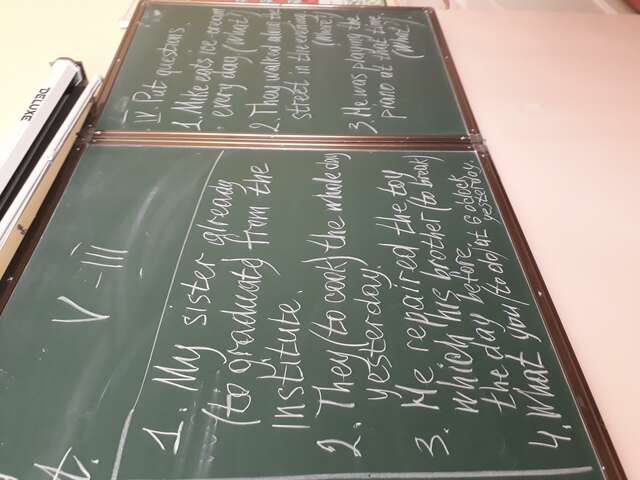 V - III
1. My sister already
(to graduate) from the
institute.
2. They (to cook) the whole day
yesterday.
3. He repaired the toy
which his brother (to break)
the day before.
4. What you (to do) at 6 o'clock
yesterday.
IV. Put questions.
1. Mike eats ice-cream
every day (What)
2. They walked about the
street in the evening.
(Where)
3. He was playing the
piano at that time.
(What)
DELUXE